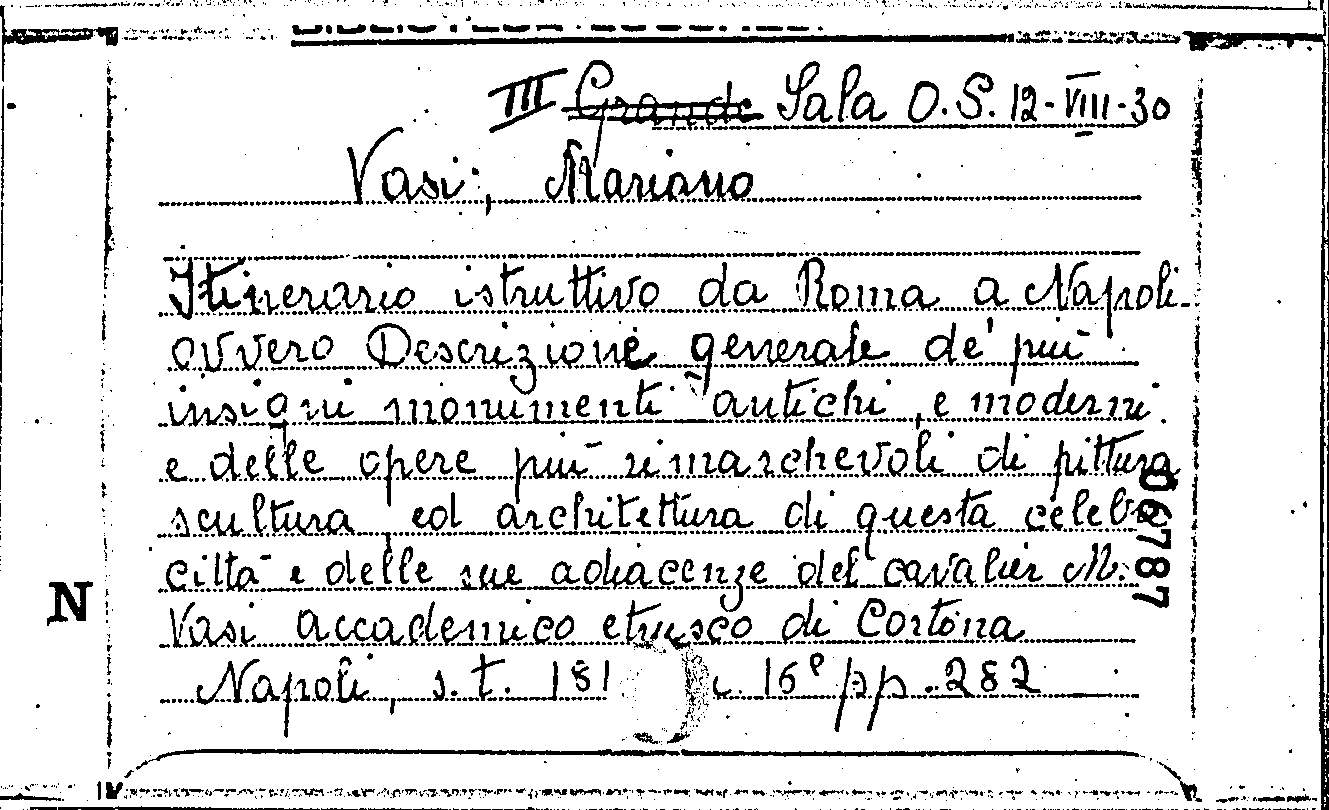 III Grande Sala O.S. 12-VIII-30
Vasi, Mariano
Itinerario istruttivo da Roma a Napoli
ovvero Descrizione generale de' più
insigni monumenti antichi, e moderni
e delle opere più rimarchevoli di pittura
scultura, ed architettura di questa celebre
città e delle sue adiacenze del cavalier M.
Vasi accademico etrusco di Cortona
Napoli, s.t. 181 16° pp. 282
N
06787